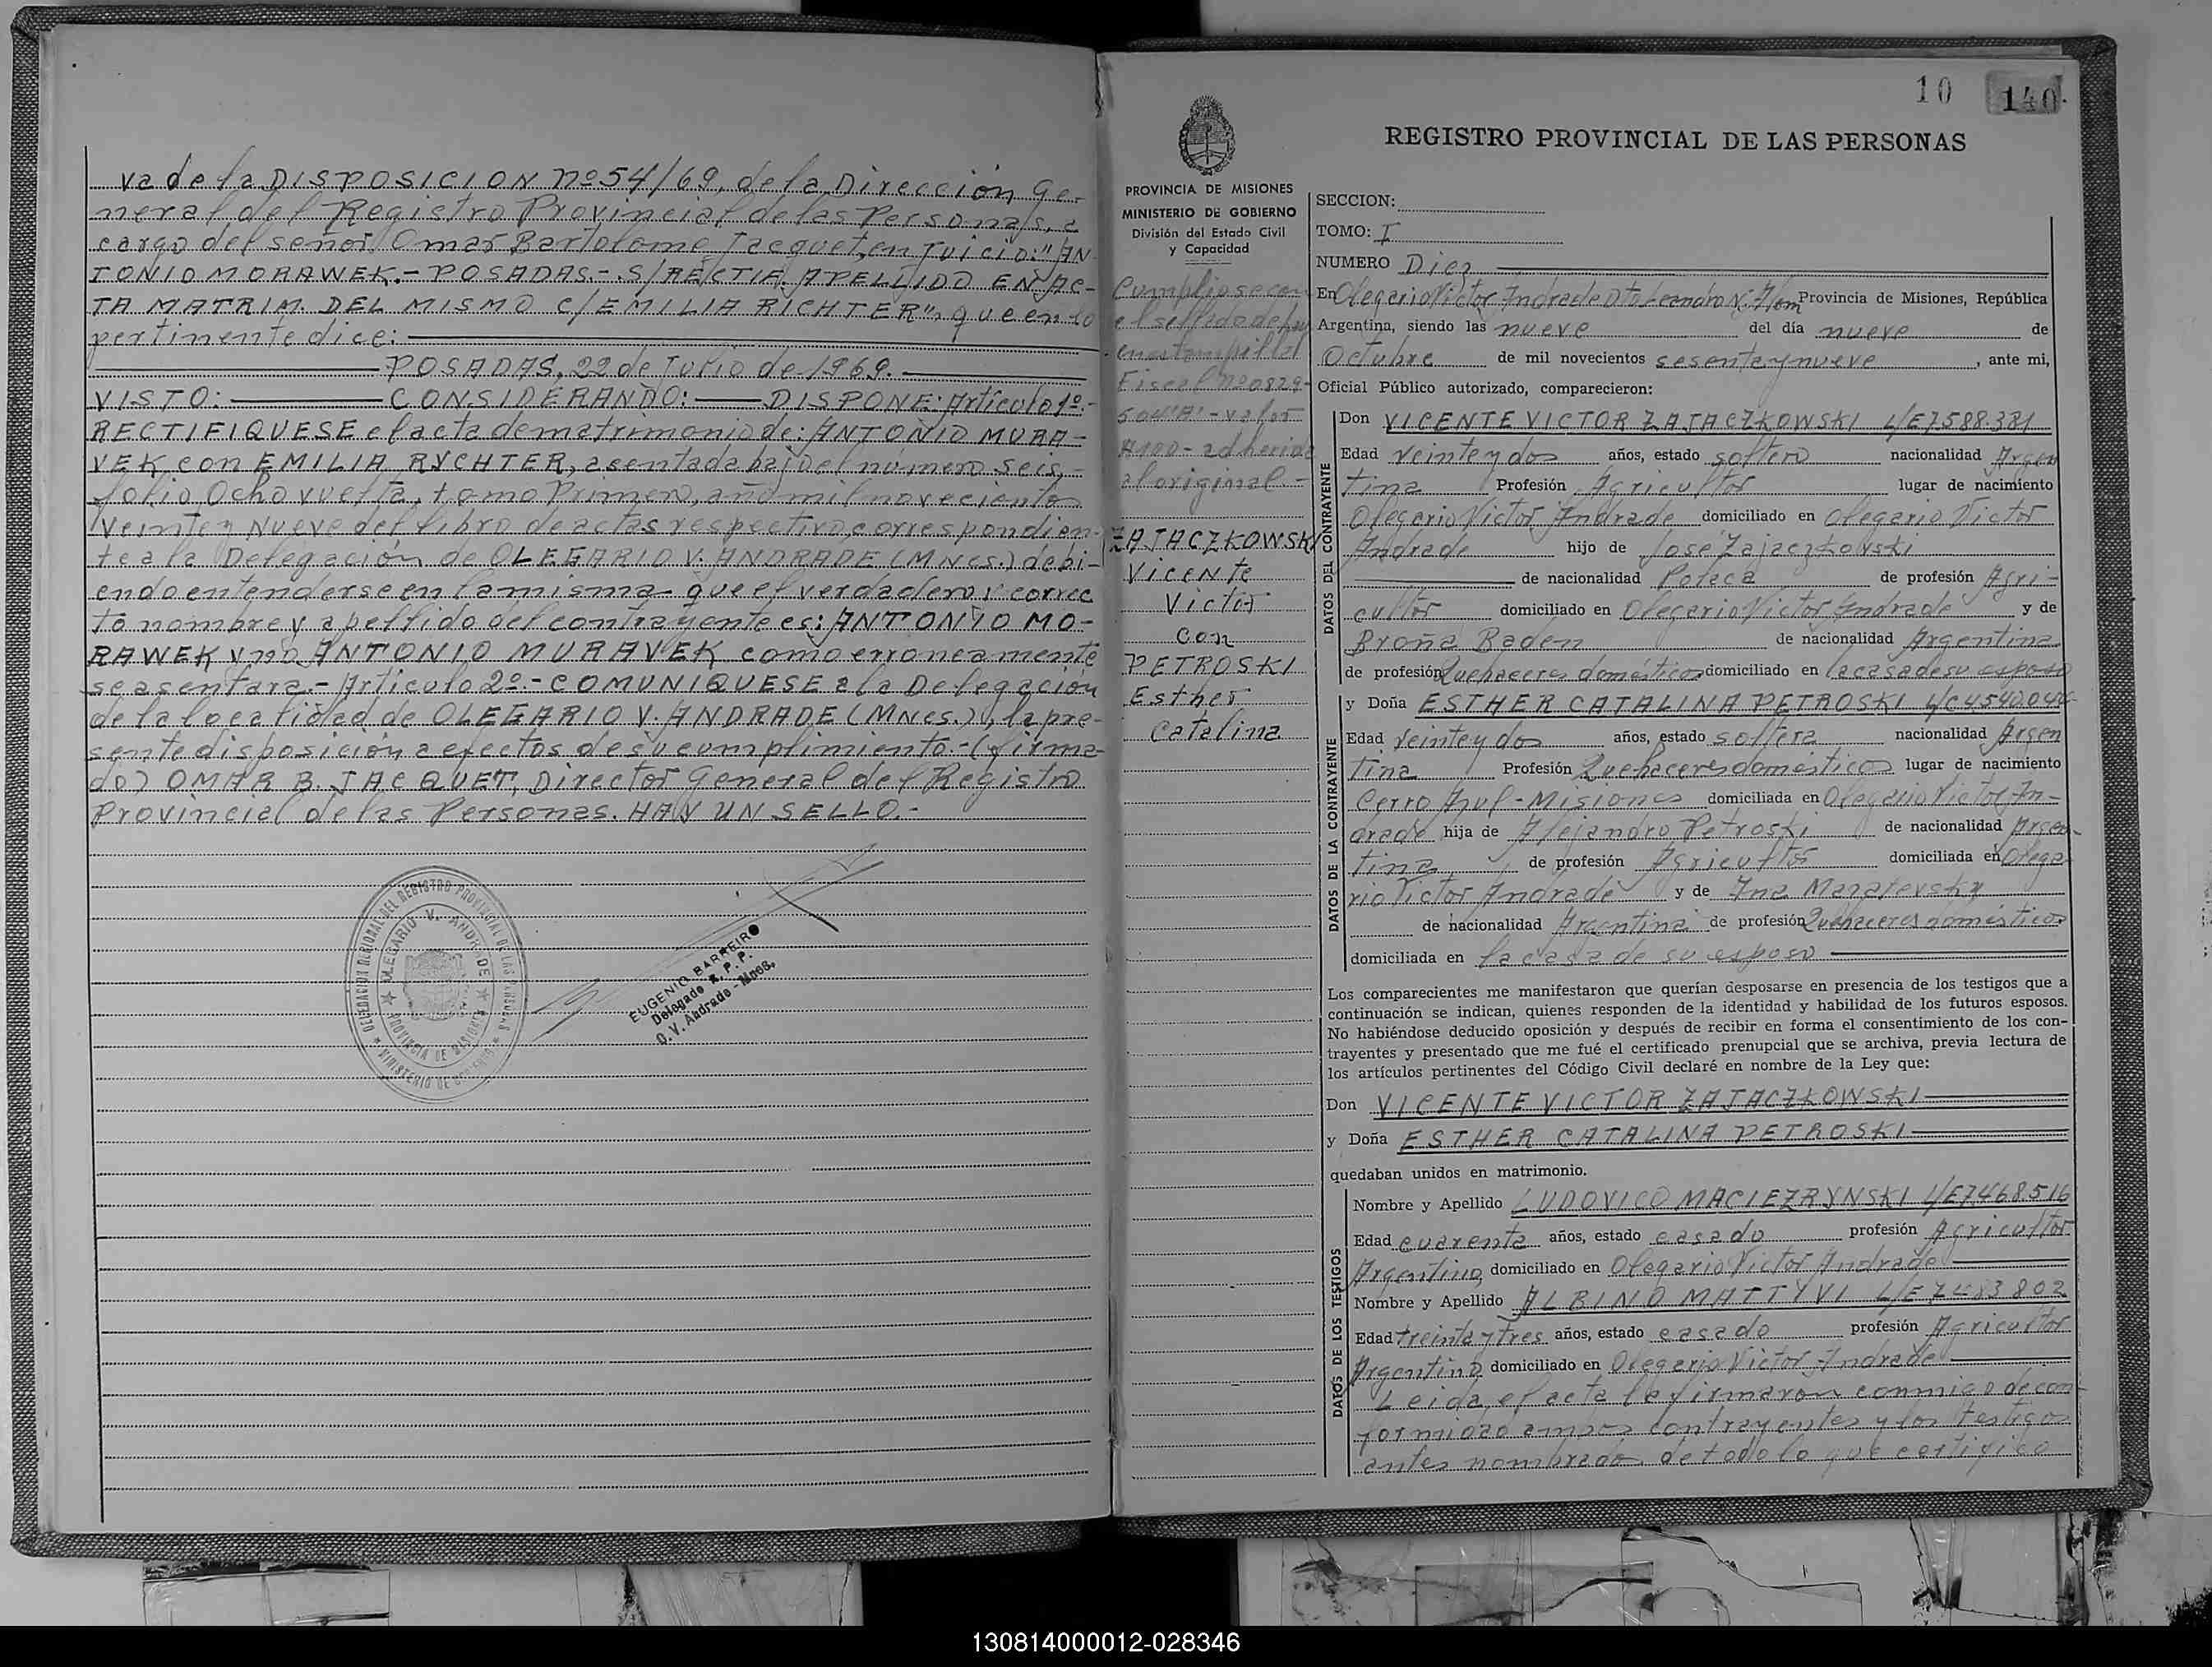 va de la DISPOSICION nº 54/69, de la Dirección Ge-
neral del Registro Provincial de las Personas, a
cargo del señor Omar Bartolome Jacquet, en Juicio: "AN
TONIO MORAWEK.- POSADAS.- S/RECTIF. APELLIDO EN AC-
TA MATRIM. DEL MISMO C/EMILIA RICHTER", que en lo
pertinente dice:
POSADAS, 22 de Julio de 1969.
VISTO: CONSIDERANDO: DISPONE: Artículo 1º.-
RECTIFIQUESE el acta de matrimonio de: ANTONIO MURA-
VEK, con EMILIA RYCHTER, asentada bajo el número seis,
folio Ocho vuelta, tomo Primero, año mil novecientos
Veinte y Nueve del libro de actas respectivo, correspondien-
te a la Delegación de OLEGARIO V. ANDRADE (MNes.) debi-
endo entenderse en la misma que el verdadero y correc
to nombre y apellido del contrayente es: ANTONIO MO-
RAWEK y no ANTONIO MURAVEK como erroneamente
se asentara.- Artículo 2º.- COMUNIQUESE a la Delegación
de la localidad de OLEGARIO V. ANDRADE (MNes.), la pre-
sente disposición a efectos de su cumplimiento.- (firma-
do) OMAR B. JACQUET, Director General del Registro
Provincial de las Personas. HAY UN SELLO.-
DELEGACION REGIONAL DEL REGISTRO PROVINCIAL DE LAS PERSONAS
OLEGARIO V. ANDRADE
PROVINCIA DE MISIONES
MINISTERIO DE GOBIERNO
EUGENIO BARREIRO
Delegado R. P. P.
O. V. Andrade - Mnes.
10 140
REGISTRO PROVINCIAL DE LAS PERSONAS
PROVINCIA DE MISIONES
MINISTERIO DE GOBIERNO
División del Estado Civil
y Capacidad
Cumpliose con
el sellado de ley
en estampilla
Fiscal nº 0829-
valor
$100- adherida
al original-
ZAJACZKOWSKI
Vicente
Victor
Con
PETROSKI
Esther
Catalina
SECCION:
TOMO: I
NUMERO Diez
En Olegario Victor Andrade Dto Leandro N. Alem Provincia de Misiones, República
Argentina, siendo las nueve del día nueve de
Octubre de mil novecientos sesenta y nueve, ante mi,
Oficial Público autorizado, comparecieron:
DATOS DEL CONTRAYENTE
Don VICENTE VICTOR ZAJACZKOWSKI L/E 7.588.381
Edad veinte y dos años, estado soltero nacionalidad Argen
tina Profesión Agricultor lugar de nacimiento
Olegario Victor Andrade domiciliado en Olegario Victor
Andrade hijo de José Zajaczkowski
de nacionalidad Polaca de profesión Agri-
cultor domiciliado en Olegario Victor Andrade y de
Broña Baden de nacionalidad Argentina
de profesión Quehaceres domésticos domiciliado en la casa de su esposo
DATOS DE LA CONTRAYENTE
y Doña ESTHER CATALINA PETROSKI L/C 4.540.046
Edad veinte y dos años, estado soltera nacionalidad Argen
tina Profesión Quehaceres domésticos lugar de nacimiento
Cerro Azul - Misiones domiciliada en Olegario Victor An-
drade hija de Alejandro Petroski de nacionalidad Argen-
tina de profesión Agricultor domiciliada en Olega
rio Victor Andrade y de Ana Mazalevsky
de nacionalidad Argentina de profesión Quehaceres domésticos
domiciliada en la casa de su esposo
Los comparecientes me manifestaron que querían desposarse en presencia de los testigos que a
continuación se indican, quienes responden de la identidad y habilidad de los futuros esposos.
No habiéndose deducido oposición y después de recibir en forma el consentimiento de los con-
trayentes y presentado que me fué el certificado prenupcial que se archiva, previa lectura de
los artículos pertinentes del Código Civil declaré en nombre de la Ley que:
Don VICENTE VICTOR ZAJACZKOWSKI
y Doña ESTHER CATALINA PETROSKI
quedaban unidos en matrimonio.
DATOS DE LOS TESTIGOS
Nombre y Apellido LUDOVICO MACIEZRYNSKI L/E 7.468.516
Edad cuarenta años, estado casado profesión Agricultor
Argentino, domiciliado en Olegario Victor Andrade
Nombre y Apellido ALBINO MATTYVI L/E 7.483.802
Edad treinta y tres años, estado casado profesión Agricultor
Argentino domiciliado en Olegario Victor Andrade
Leida el acta la firmaron conmigo de con-
formidad ambos contrayentes y los testigos
antes nombrados de todo lo que certifico
130814000012-028346